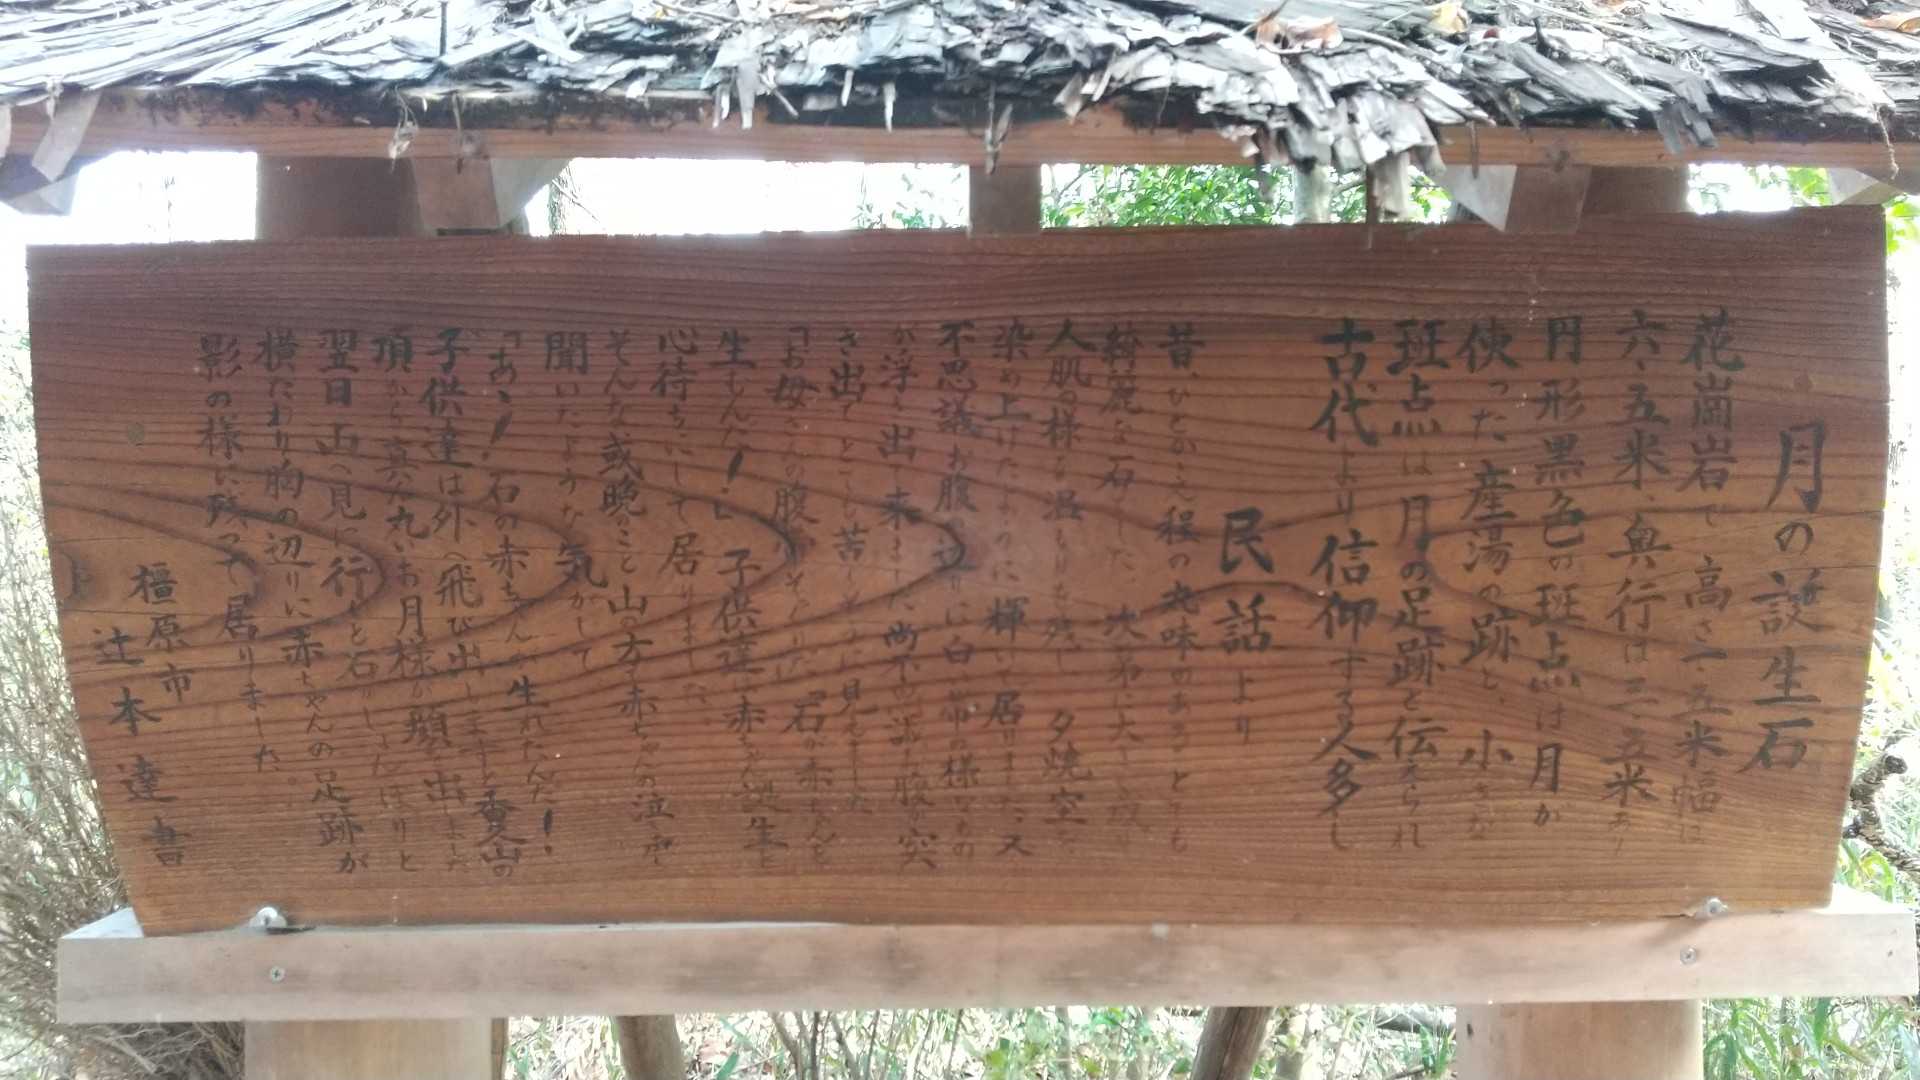 月の誕生石
花崗岩で高さ一、五米幅は
六、五米、奥行は三、五米あり
円形黒色の斑点は月が
使った産湯の跡と、小さな
斑点は月の足跡と伝えられ
古代より信仰する人多し
民話より
昔、ひとかかえ程の丸味のあるとても
綺麗な石でした、次第に大きく成り
人肌の様な温もりを残し 夕焼空を
染め上げたものに輝いて居りました、又
不思議にお腹の辺りに白い帯の様なものが
が浮き出て来ました尚不思議にも腹が突
き出てとても苦しそうに見えました
「お母さんの腹がそっくりだ」「石が赤ちゃんを
生むんだ!」子供達は赤ちゃん誕生を
心待ちにして居りました。
そんな或晩のこと山の方で赤ちゃんの泣き声を
聞いたような気がして
「あゝ!石の赤ちゃんが生れたんだ!
子供達は外へ飛び出しますと香久山の
頂から真ん丸いお月様が顔を出しました
翌日山へ見に行くと石はしょんぼりと
横たわり胸の辺りに赤ちゃんの足跡が
影の様に残って居りました。
橿原市
辻本達書